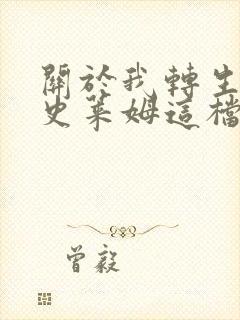 關於我轉生
史萊姆這檔
曾毅